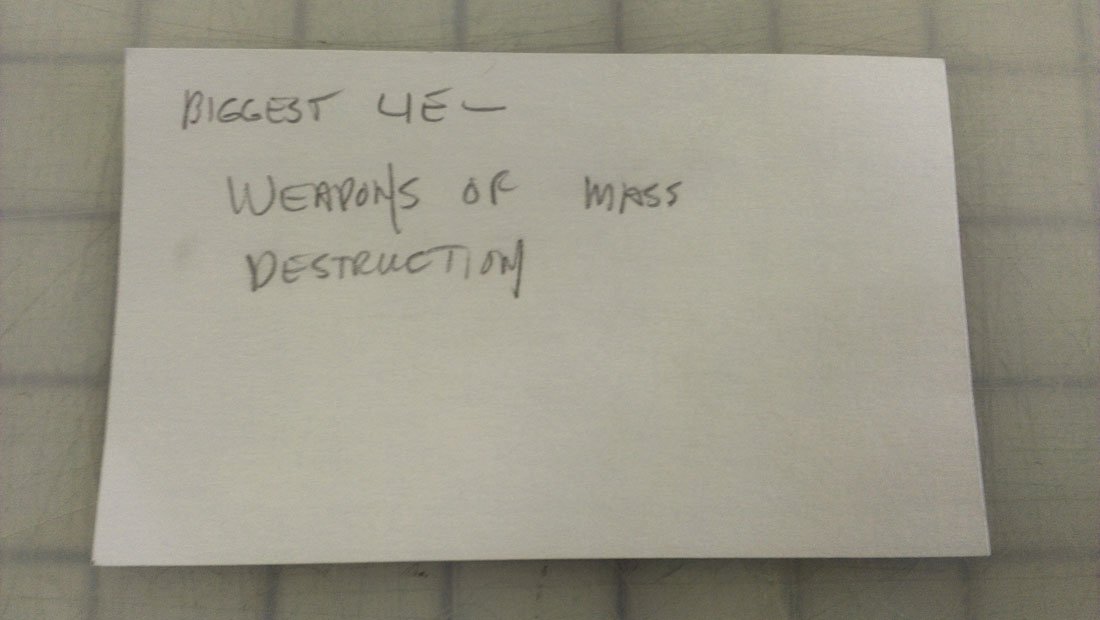 BIGGEST LIE —
WEAPONS OF MASS
DESTRUCTION